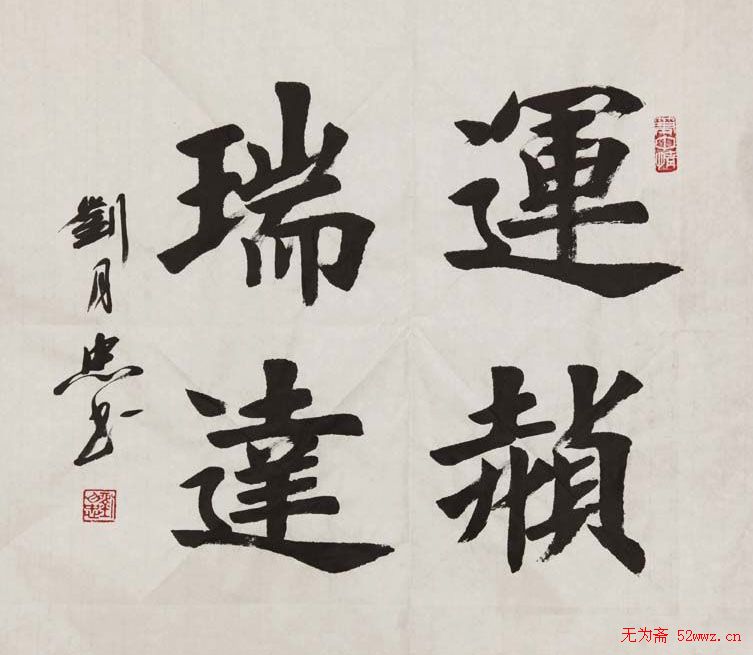 運赬
瑞達
劉月忠书
无为斋 52wwz.cn